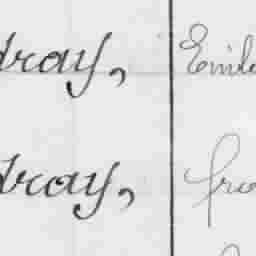 dray, Emil
dray, fra